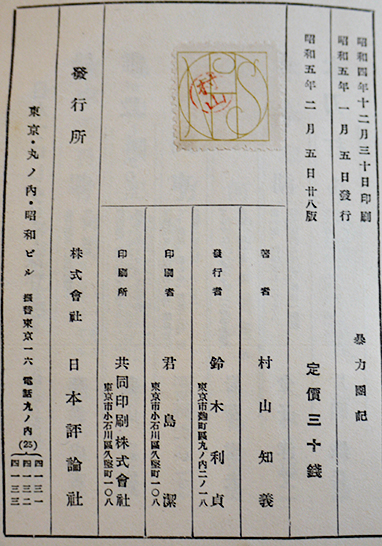 昭和四年十二月三十日印刷
昭和五年一月五日發行
暴力團記
昭和五年二月五日廿八版
定價三十錢
村山
著者 村山知義
發行者 鈴木利貞
東京市麴町區九ノ內二ノ一八
印刷者 君島潔
東京市小石川區久堅町一〇八
印刷所 共同印刷株式會社
東京市小石川區久堅町一〇八
發行所 株式會社 日本評論社
東京・丸ノ內・昭和ビル 振替東京一六 電話九ノ內(25)
四一三一
四一三二
四一三三